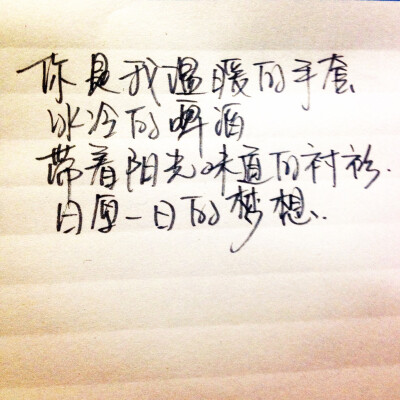 你是我温暖的手套
冰冷的啤酒
带着阳光味道的衬衫.
日复一日的梦想..